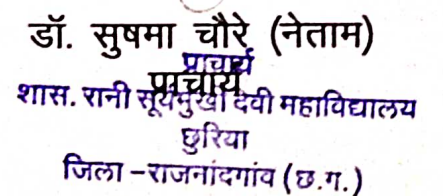 डॉ. सुषमा चौरे (नेताम)
प्राचार्य
प्राचार्य
शास. रानी सूर्यमुखी देवी महाविद्यालय
छुरिया
जिला -राजनांदगांव (छ.ग.)